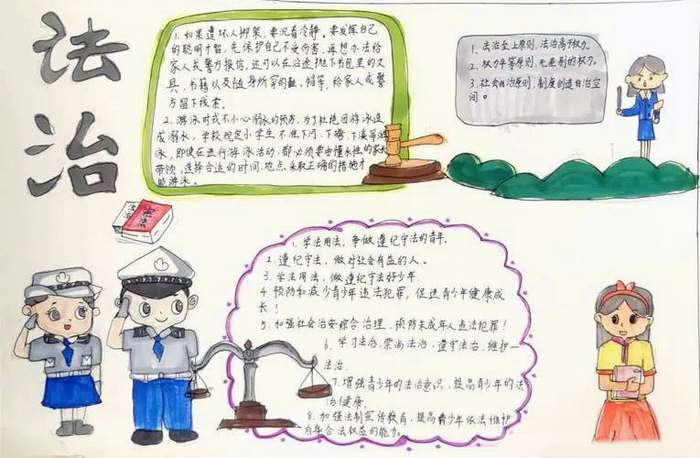 法治
1. 如果遭坏人绑架，要沉着冷静。要发挥自己
的聪明才智，先保护自己不受伤害，再想办法给
家人或警方报信，还可以在沿途抛下书包里的文
具、书籍以及随身所穿的鞋、帽等，给家人或警
方留下线索。
2. 游泳时或不小心溺水的预防。为了杜绝因游泳造
成溺水，学校规定小学生不准下河、下塘、下溪等游
泳，即使在进行游泳活动，都必须要由懂水性的家长
带领，选择合适的时间、地点，采取正确的措施才
能游泳。
1. 法治至上原则，法治高于权力。
2. 权力平等原则，无差别的权力。
3. 社会自治原则，制度创造自治空
间。
1. 学法用法，争做遵纪守法的青年。
2. 遵纪守法，做对社会有益的人。
3. 学法用法，做遵纪守法好少年
4. 预防和减少青少年违法犯罪，促进青少年健康成
长！
5. 加强社会治安综合治理，预防未成年人违法犯罪！
6. 学习法治，崇尚法治，遵守法治，维护
法治。
7. 增强青少年的法治意识，提高青少年的法
治健康。
8. 加强法制宣传教育，提高青少年依法维护
自身合法权益的能力。